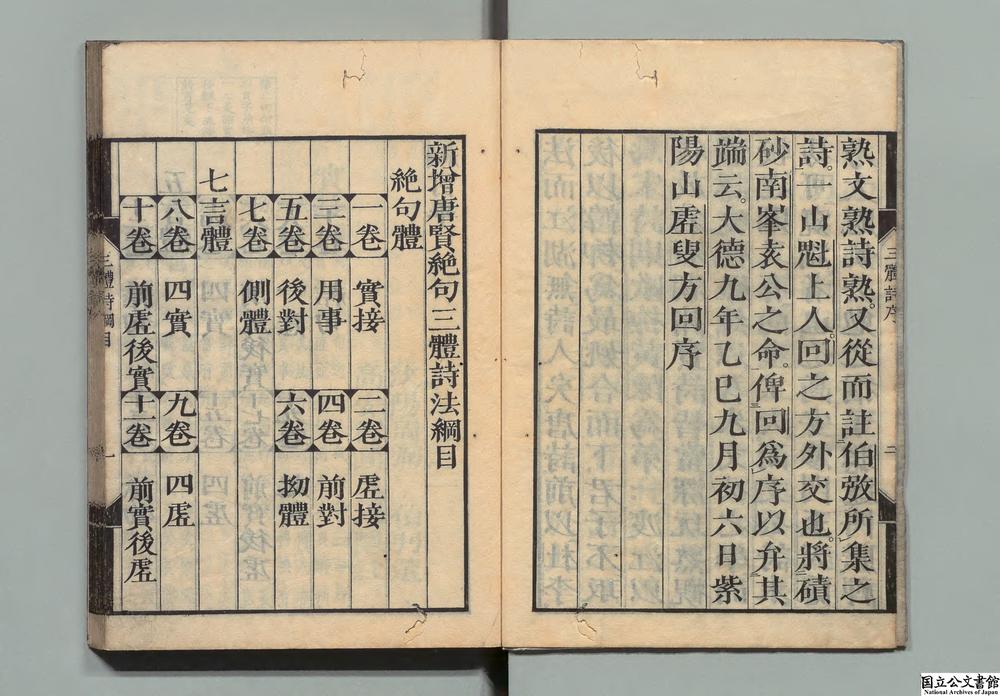 熟文熟詩熟又從而註伯弜所集之
詩一山魁上人回之方外交也將磧
砂南峯袁公之命俾回爲序以弁其
端云大德九年乙巳九月初六日紫
陽山虗叟方回序
三體詩序
二
新增唐賢絕句三體詩法綱目
絕句體
一卷 實接 二卷 虗接
三卷 用事 四卷 前對
五卷 後對 六卷 拗體
七卷 側體
七言體
八卷 四實 九卷 四虗
十卷 前虗後實 十一卷 前實後虗
三體詩綱目
一
国立公文書館
National Archives of Japan